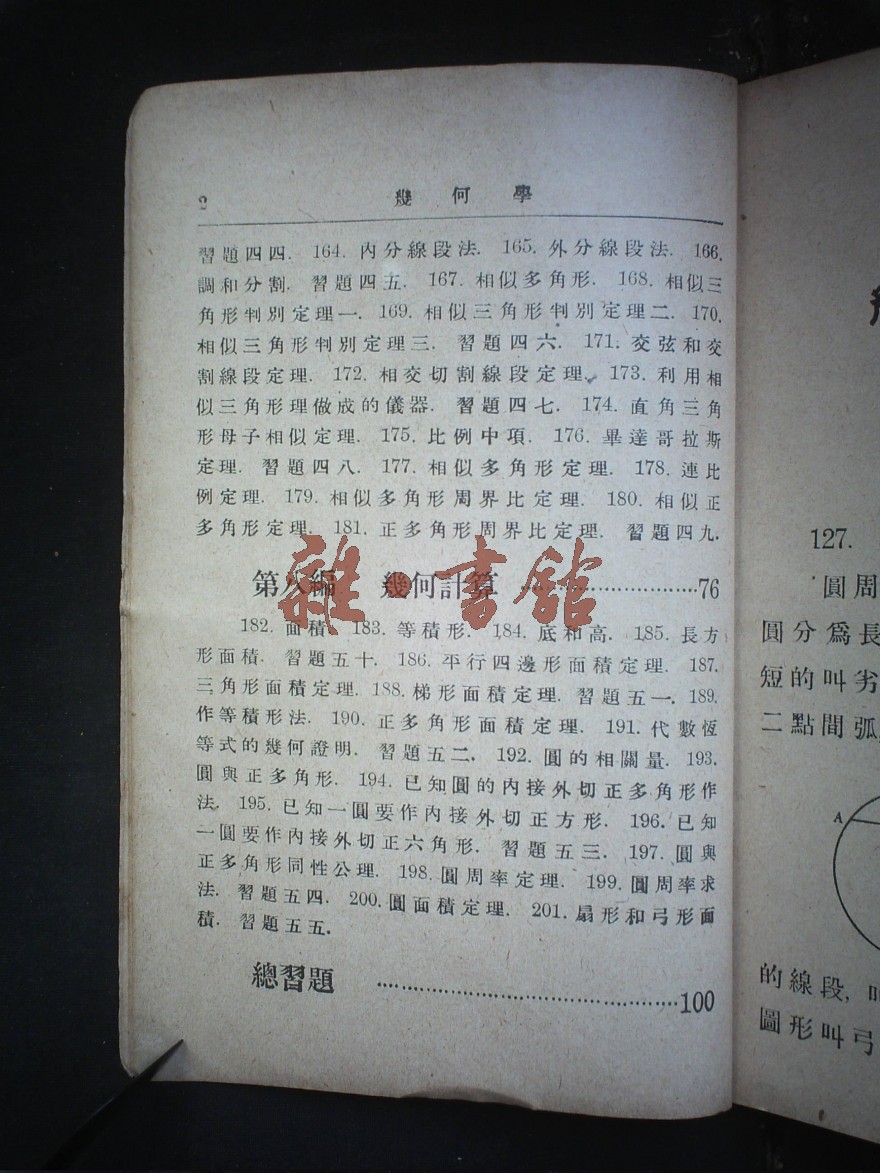 2 幾何學
習題四四. 164. 內分線段法. 165. 外分線段法. 166.
調和分割. 習題四五. 167. 相似多角形. 168. 相似三
角形判別定理一. 169. 相似三角形判別定理二. 170.
相似三角形判別定理三. 習題四六. 171. 交弦和交
割線段定理. 172. 相交切割線段定理. 173. 利用相
似三角形理做成的儀器. 習題四七. 174. 直角三角
形母子相似定理. 175. 比例中項. 176. 畢達哥拉斯
定理. 習題四八. 177. 相似多角形定理. 178. 連比
例定理. 179. 相似多角形周界比定理. 180. 相似正
多角形定理. 181. 正多角形周界比定理. 習題四九.
第八編 幾何計算 ……………………76
雜·書館
182. 面積. 183. 等積形. 184. 底和高. 185. 長方
形面積. 習題五十. 186. 平行四邊形面積定理. 187.
三角形面積定理. 188. 梯形面積定理. 習題五一. 189.
作等積形法. 190. 正多角形面積定理. 191. 代數恆
等式的幾何證明. 習題五二. 192. 圓的相關量. 193.
圓與正多角形. 194. 已知圓的內接外切正多角形作
法. 195. 已知一圓要作內接外切正方形. 196. 已知
一圓要作內接外切正六角形. 習題五三. 197. 圓與
正多角形同性公理. 198. 圓周率定理. 199. 圓周率求
法. 習題五四. 200. 圓面積定理. 201. 扇形和弓形面
積. 習題五五.
總習題 ……………………………………100
127.
圓周
圓分爲長
短的叫劣
二點間弧
A
的線段,
圖形叫弓